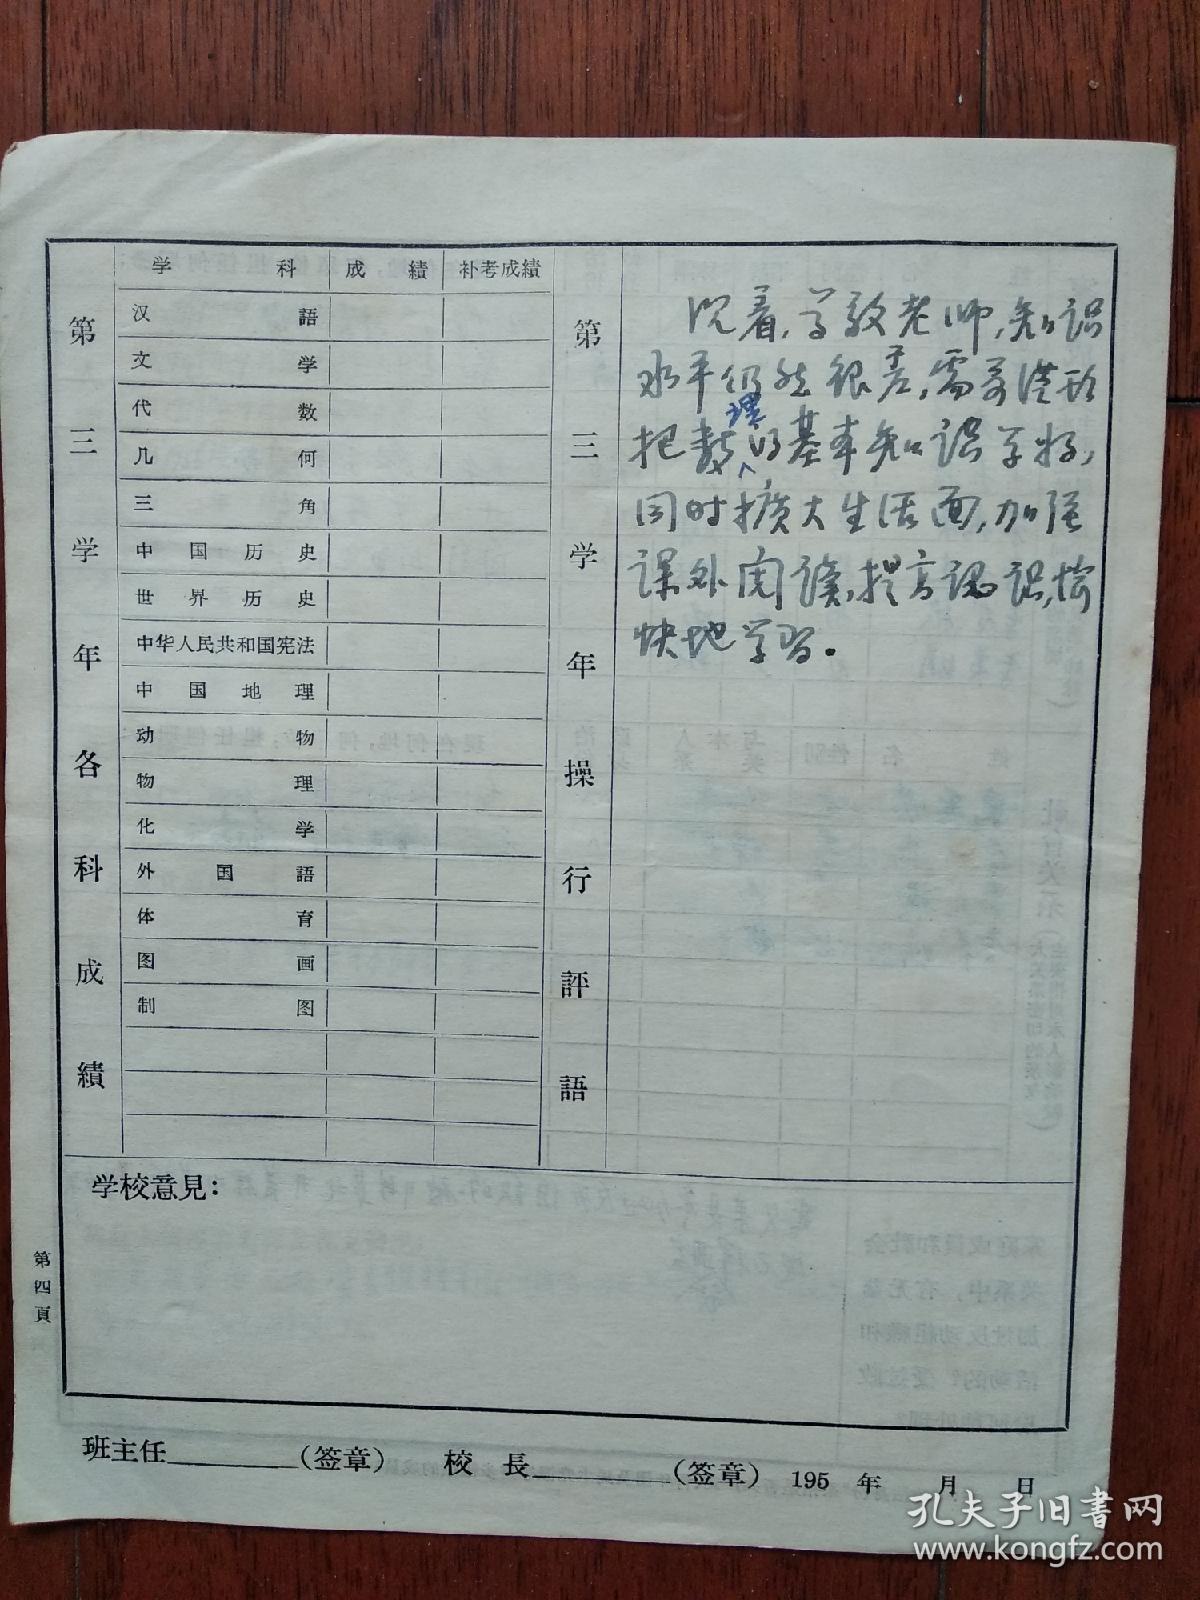 学科 成績 补考成績
汉語
文学
代数
几何
三角
中国历史
世界历史
中华人民共和国宪法
中国地理
动物
物理
化学
外国語
体育
图画
制图
第三学年各科成績
第三学年操行評語
沉着,尊敬老师,知识
水平仍然很差,需要
把数理的基本知识学好,
同时擴大生活面,加强
课外阅读,提高認识,愉
快地学習。
学校意見:
第四頁
班主任 (签章) 校長 (签章) 195 年 月 日
孔夫子旧書网
www.kongfz.com